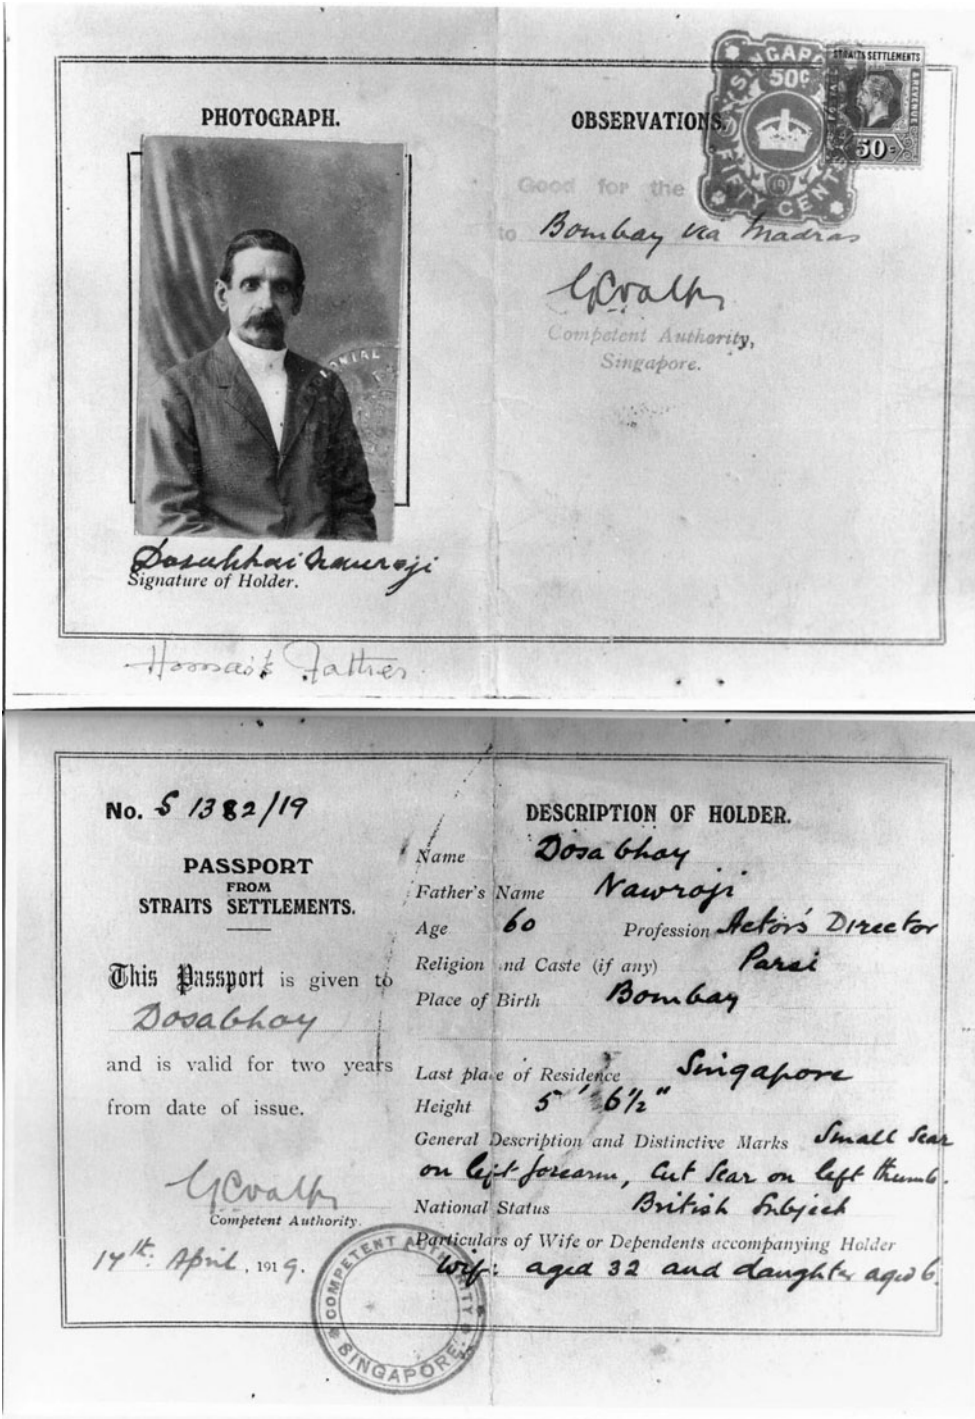 PHOTOGRAPH.
Dosabhai Nawroji
Signature of Holder.
Homai's Father
OBSERVATIONS.
SINGAP
50C
FIFTY CENT
STRAITS SETTLEMENTS
POSTAGE
& REVENUE
50c
Good for the
to Bombay via Madras
Competent Authority,
Singapore.
ONIAL
No. S 1382/19
PASSPORT
FROM
STRAITS SETTLEMENTS.
This Passport is given to
Dosabhoy
and is valid for two years
from date of issue.
Competent Authority.
14th: April, 1919.
COMPETENT AUTHORITY
SINGAPORE
DESCRIPTION OF HOLDER.
Name Dosabhoy
Father's Name Nawroji
Age 60 Profession Actors' Director
Religion and Caste (if any) Parsi
Place of Birth Bombay
Last place of Residence Singapore
Height 5' 6½"
General Description and Distinctive Marks Small scar
on left forearm, Cut scar on left thumb.
National Status British Subject
Particulars of Wife or Dependents accompanying Holder
Wife: aged 32 and daughter aged 6.